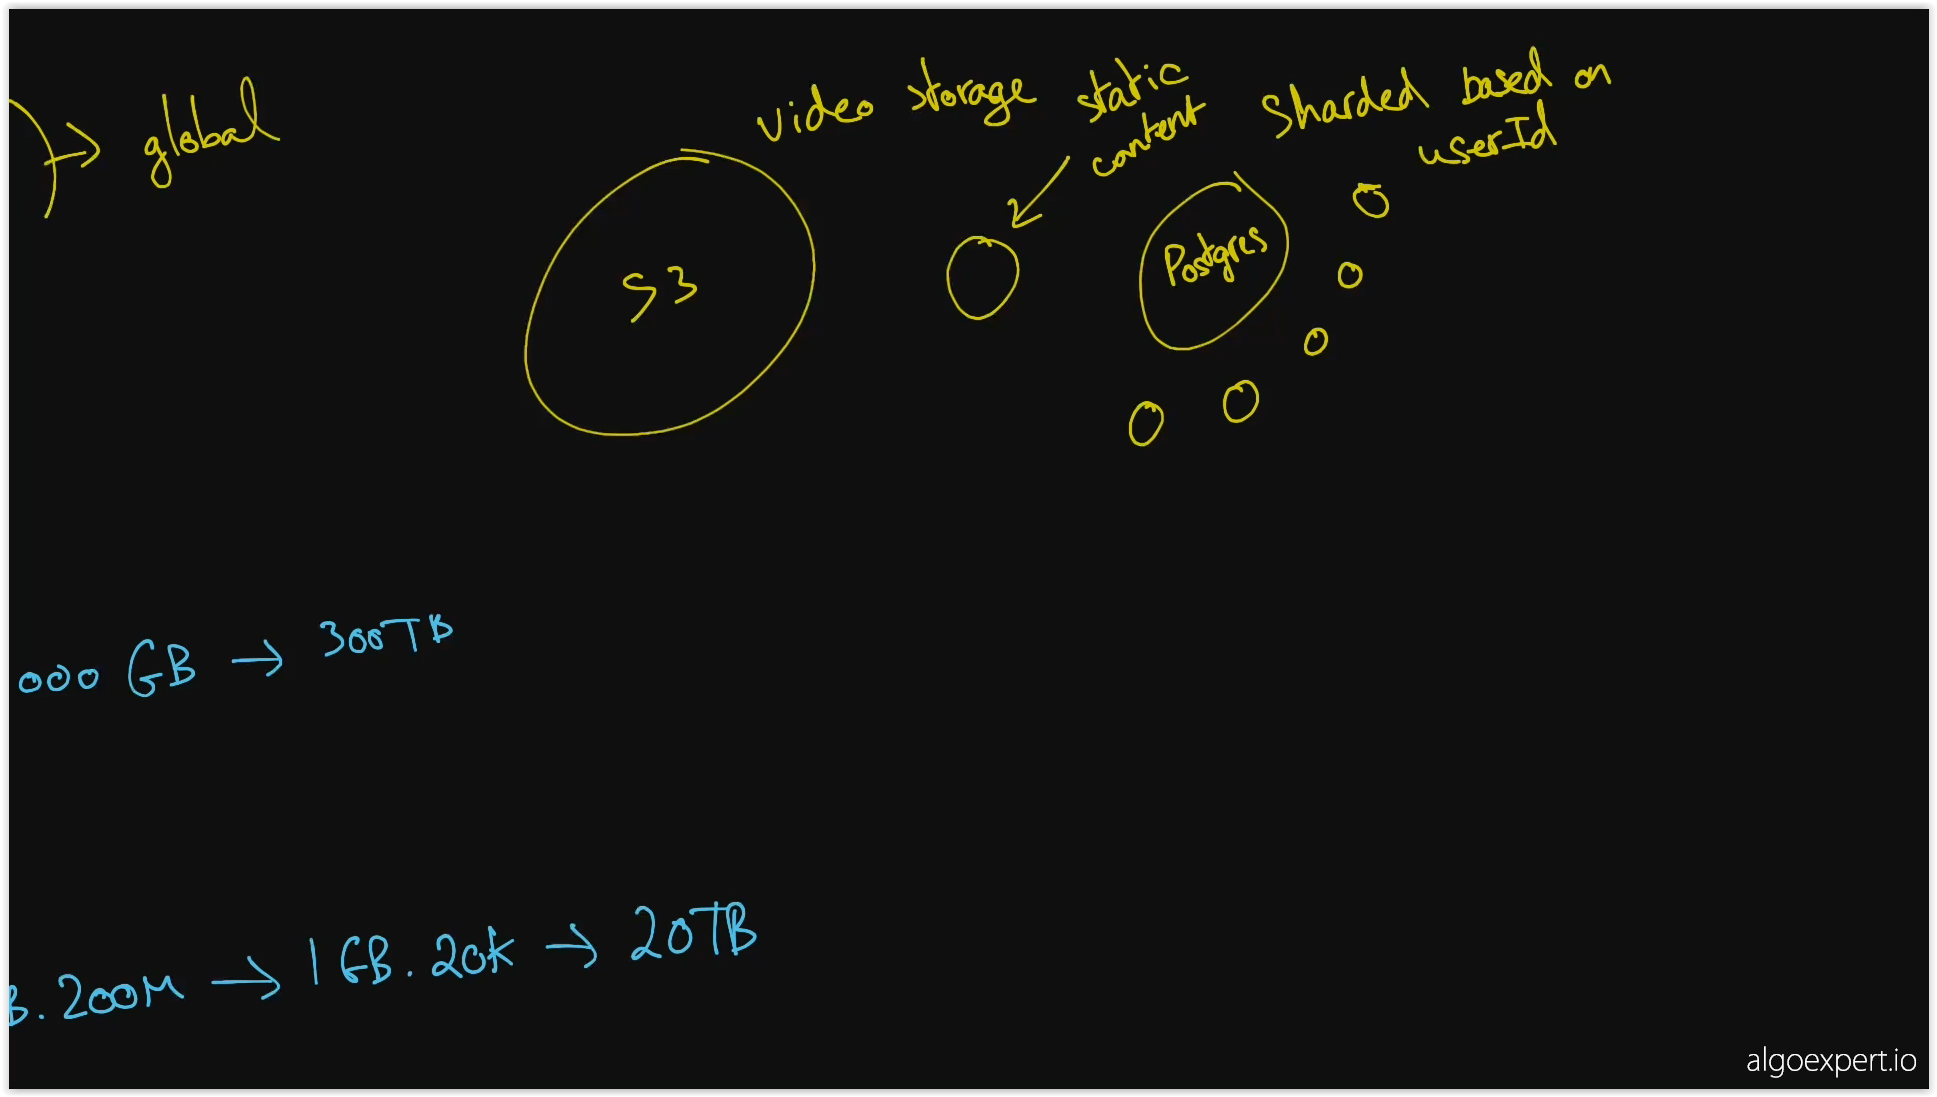 global
video storage
static
content
Sharded based on
userId
S3
Postgres
000 GB → 300TB
B. 200M → 1 GB. 20K → 20TB
algoexpert.io